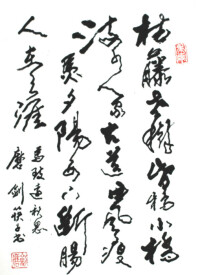 枯藤老樹昏鴉小橋
流水人家古道西風瘦
馬夕陽西下斷腸
人在天涯
馬致遠秋思